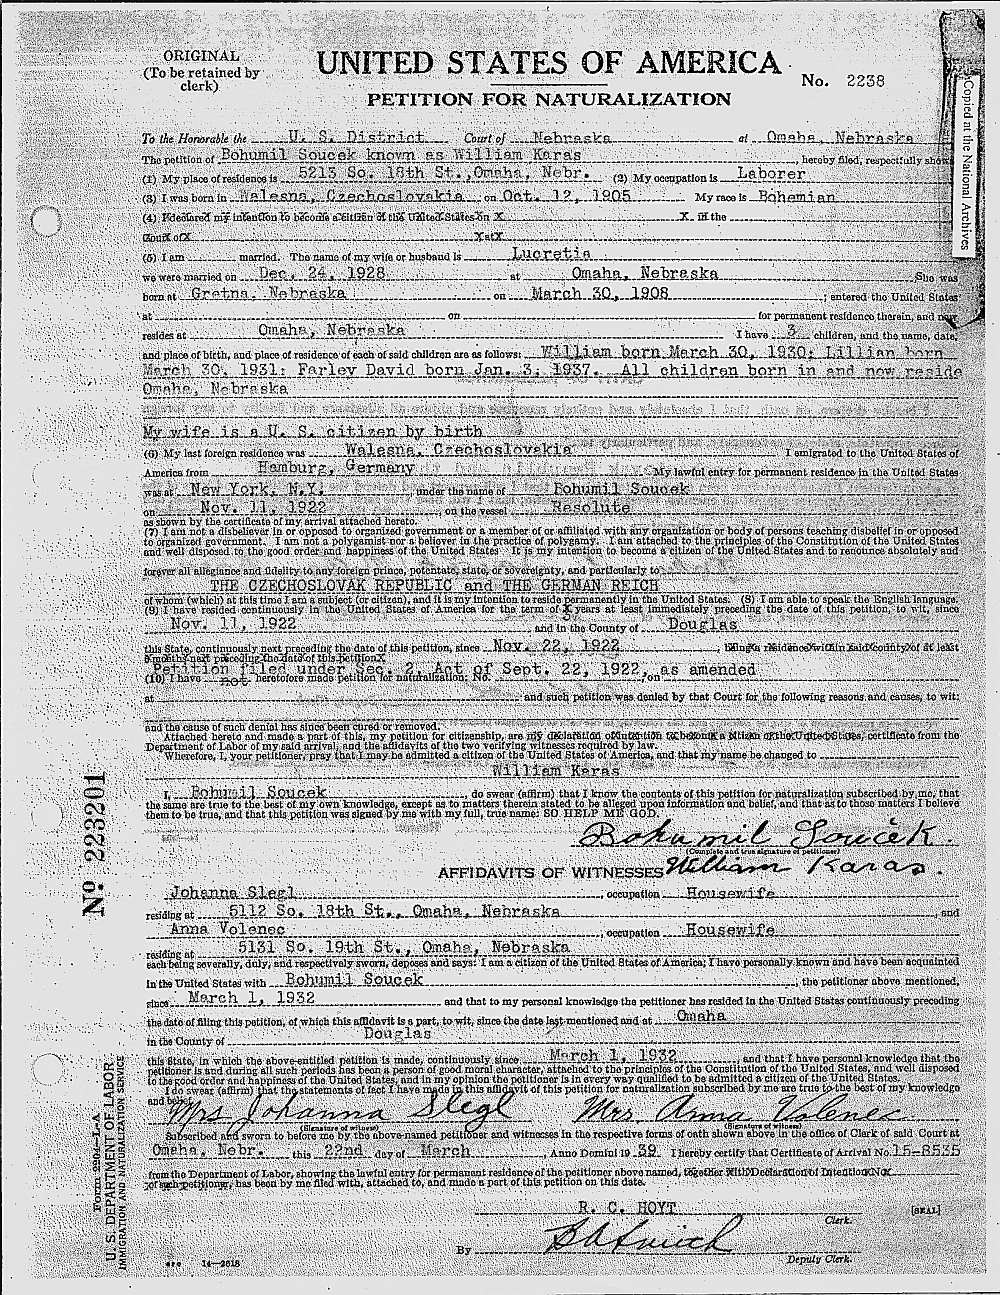 ORIGINAL
(To be retained by
clerk)
UNITED STATES OF AMERICA
No. 2238
PETITION FOR NATURALIZATION
Copied at the National Archives
To the Honorable the U. S. District Court of Nebraska at Omaha, Nebraska
The petition of Bohumil Soucek known as William Karas, hereby filed, respectfully shows
(1) My place of residence is 5213 So. 18th St., Omaha, Nebr. (2) My occupation is Laborer
(3) I was born in Walesna, Czechoslovakia on Oct. 12, 1905 My race is Bohemian
(4) I declared my intention to become a citizen of the United States on X X in the
Court of X X at X
(5) I am married. The name of my wife or husband is Lucretia
we were married on Dec. 24, 1928 at Omaha, Nebraska She was
born at Gretna, Nebraska on March 30, 1908; entered the United States
at on for permanent residence therein, and now
resides at Omaha, Nebraska I have 3 children, and the name, date,
and place of birth, and place of residence of each of said children are as follows: William born March 30, 1930; Lillian born
March 30, 1931; Farley David born Jan. 3, 1937. All children born in and now reside
Omaha, Nebraska
My wife is a U. S. citizen by birth
(6) My last foreign residence was Walesna, Czechoslovakia I emigrated to the United States of
America from Hamburg, Germany My lawful entry for permanent residence in the United States
was at New York, N.Y. under the name of Bohumil Soucek
on Nov. 11, 1922, on the vessel Resolute
as shown by the certificate of my arrival attached hereto.
(7) I am not a disbeliever in or opposed to organized government or a member of or affiliated with any organization or body of persons teaching disbelief in or opposed
to organized government. I am not a polygamist nor a believer in the practice of polygamy. I am attached to the principles of the Constitution of the United States
and well disposed to the good order and happiness of the United States It is my intention to become a citizen of the United States and to renounce absolutely and
forever all allegiance and fidelity to any foreign prince, potentate, state, or sovereignty, and particularly to
THE CZECHOSLOVAK REPUBLIC and THE GERMAN REICH
of whom (which) at this time I am a subject (or citizen), and it is my intention to reside permanently in the United States. (8) I am able to speak the English language.
(9) I have resided continuously in the United States of America for the term of X years at least immediately preceding the date of this petition, to wit, since
3
Nov. 11, 1922 and in the County of Douglas
this State, continuously next preceding the date of this petition, since Nov. 22, 1922, being a residence within said county of at least
6 months next preceding the date of this petition X
Petition filed under Sec. 2, Act of Sept. 22, 1922, as amended
(10) I have not heretofore made petition for naturalization: No. on
at and such petition was denied by that Court for the following reasons and causes, to wit:
and the cause of such denial has since been cured or removed.
Attached hereto and made a part of this, my petition for citizenship, are my declaration of intention to become a citizen of the United States, certificate from the
Department of Labor of my said arrival, and the affidavits of the two verifying witnesses required by law.
Wherefore, I, your petitioner, pray that I may be admitted a citizen of the United States of America, and that my name be changed to
William Karas
I, Bohumil Soucek, do swear (affirm) that I know the contents of this petition for naturalization subscribed by me, that
the same are true to the best of my own knowledge, except as to matters therein stated to be alleged upon information and belief, and that as to those matters I believe
them to be true, and that this petition was signed by me with my full, true name: SO HELP ME GOD.
Bohumil Souček.
(Complete and true signature of petitioner)
William Karas.
AFFIDAVITS OF WITNESSES
Johanna Slegl, occupation Housewife
residing at 5112 So. 18th St., Omaha, Nebraska, and
Anna Volenec, occupation Housewife
residing at 5131 So. 19th St., Omaha, Nebraska
each being severally, duly, and respectively sworn, deposes and says: I am a citizen of the United States of America; I have personally known and have been acquainted
in the United States with Bohumil Soucek, the petitioner above mentioned,
since March 1, 1932 and that to my personal knowledge the petitioner has resided in the United States continuously preceding
the date of filing this petition, of which this affidavit is a part, to wit, since the date last mentioned and at Omaha
in the County of Douglas
this State, in which the above-entitled petition is made, continuously since March 1, 1932 and that I have personal knowledge that the
petitioner is and during all such periods has been a person of good moral character, attached to the principles of the Constitution of the United States, and well disposed
to the good order and happiness of the United States, and in my opinion the petitioner is in every way qualified to be admitted a citizen of the United States.
I do swear (affirm) that the statements of fact I have made in this affidavit of this petition for naturalization subscribed by me are true to the best of my knowledge
and belief.
Mrs Johanna Slegl Mrs Anna Volenec
(Signature of witness) (Signature of witness)
Subscribed and sworn to before me by the above-named petitioner and witnesses in the respective forms of oath shown above in the office of Clerk of said Court at
Omaha, Nebr. this 22nd day of March, Anno Domini 19 39 I hereby certify that Certificate of Arrival No. 15-8535
from the Department of Labor, showing the lawful entry for permanent residence of the petitioner above named, together with Declaration of Intention No X
of such petitioner, has been by me filed with, attached to, and made a part of this petition on this date.
R. C. HOYT
Clerk.
[SEAL]
By
Deputy Clerk.
14—2618
No 223201
Form 2204—L-A
U. S. DEPARTMENT OF LABOR
IMMIGRATION AND NATURALIZATION SERVICE